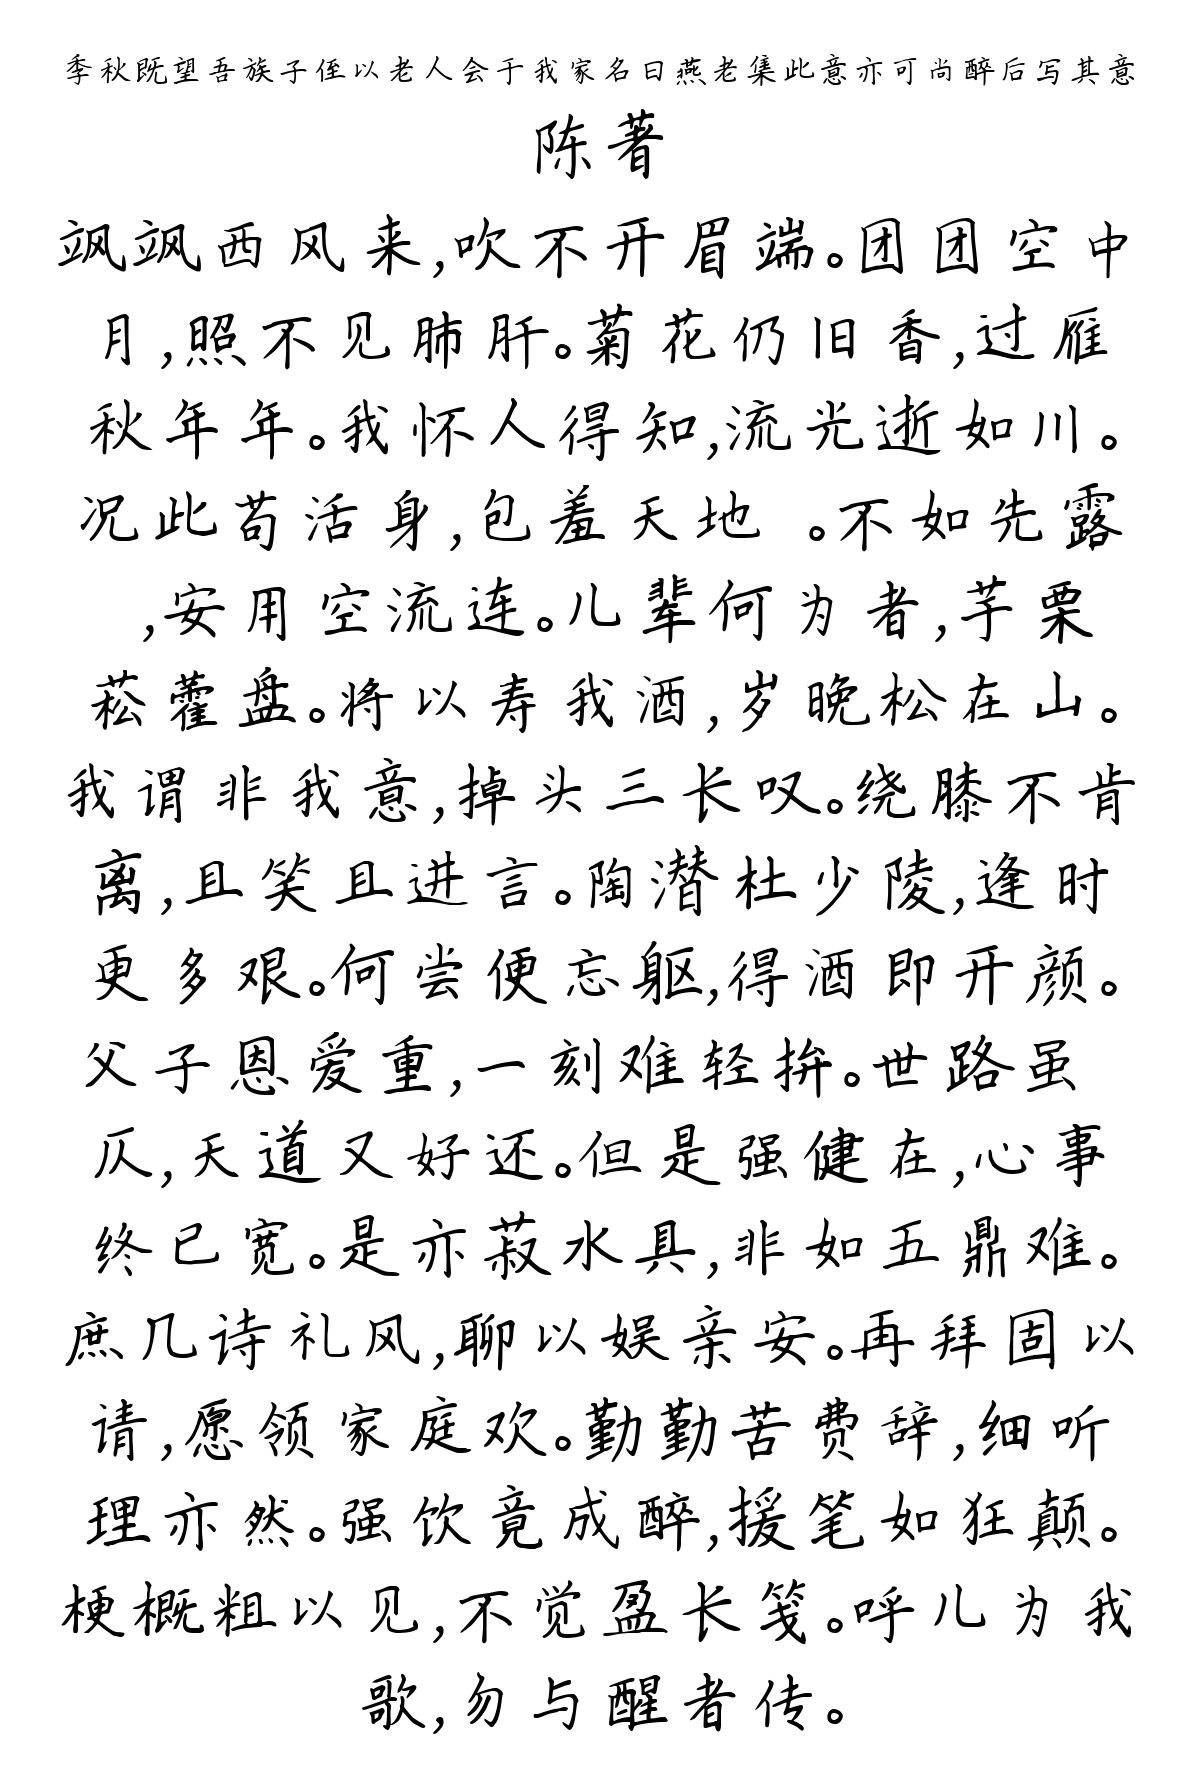 季秋既望吾族子侄以老人会于我家名曰燕老集此意亦可尚醉后写其意
陈著
飒飒西风来,吹不开眉端。团团空中
月,照不见肺肝。菊花仍旧香,过雁
秋年年。我怀人得知,流光逝如川。
况此苟活身,包羞天地 。不如先露
,安用空流连。儿辈何为者,芋栗
菘藿盘。将以寿我酒,岁晚松在山。
我谓非我意,掉头三长叹。绕膝不肯
离,且笑且进言。陶潜杜少陵,逢时
更多艰。何尝便忘躯,得酒即开颜。
父子恩爱重,一刻难轻拚。世路虽
仄,天道又好还。但是强健在,心事
终已宽。是亦菽水具,非如五鼎难。
庶几诗礼风,聊以娱亲安。再拜固以
请,愿领家庭欢。勤勤苦费辞,细听
理亦然。强饮竟成醉,援笔如狂颠。
梗概粗以见,不觉盈长笺。呼儿为我
歌,勿与醒者传。